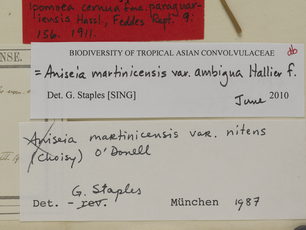 Ipomoea cernua Ehk. paraguar-
iensis Hassl., Feddes Rept. 9:
156. 1911.
NSE.
BIODIVERSITY OF TROPICAL ASIAN CONVOLVULACEAE
= Aniseia martinicensis var. ambigua Hallier f.
Det. G. Staples [SING]
June 2010
Aniseia martinicensis var. nitens
(Choisy) O'Donell
G. Staples
Det. rev. München 1987